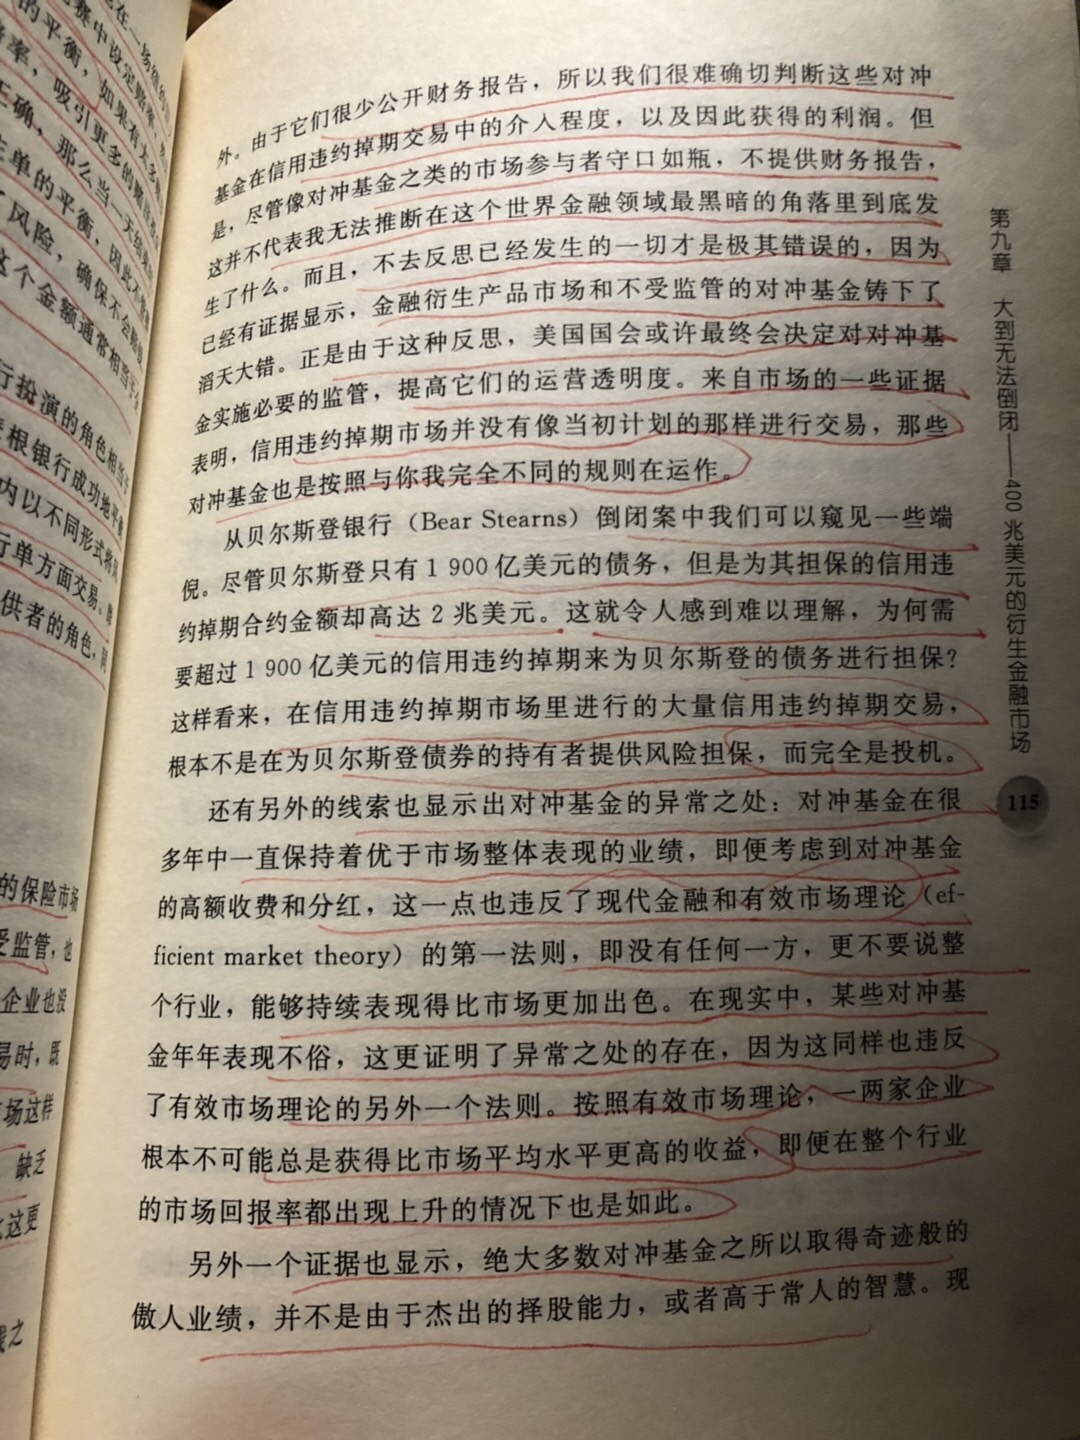 在一场橄
赛中设定赔率，然
的平衡，如果有太多
率，吸引更多的赌注
正确，那么当一天结束
注单的平衡，因此不
了风险，确保不会赔
这个金额通常相当于
行扮演的角色相当于
摩根银行成功地平衡
内以不同形式将风
行单方面交易。
供者的角色，同
的保险市场
受监管，也
企业也没
易时，既
市场这样
缺乏
这更
之
外。由于它们很少公开财务报告，所以我们很难确切判断这些对冲
基金在信用违约掉期交易中的介入程度，以及因此获得的利润。但
是，尽管像对冲基金之类的市场参与者守口如瓶，不提供财务报告，
这并不代表我无法推断在这个世界金融领域最黑暗的角落里到底发
生了什么。而且，不去反思已经发生的一切才是极其错误的，因为
已经有证据显示，金融衍生产品市场和不受监管的对冲基金铸下了
滔天大错。正是由于这种反思，美国国会或许最终会决定对对冲基
金实施必要的监管，提高它们的运营透明度。来自市场的一些证据
表明，信用违约掉期市场并没有像当初计划的那样进行交易，那些
对冲基金也是按照与你我完全不同的规则在运作。
从贝尔斯登银行（Bear Stearns）倒闭案中我们可以窥见一些端
倪。尽管贝尔斯登只有1 900亿美元的债务，但是为其担保的信用违
约掉期合约金额却高达2兆美元。这就令人感到难以理解，为何需
要超过1 900亿美元的信用违约掉期来为贝尔斯登的债务进行担保？
这样看来，在信用违约掉期市场里进行的大量信用违约掉期交易，
根本不是在为贝尔斯登债券的持有者提供风险担保，而完全是投机。
还有另外的线索也显示出对冲基金的异常之处：对冲基金在很
多年中一直保持着优于市场整体表现的业绩，即便考虑到对冲基金
的高额收费和分红，这一点也违反了现代金融和有效市场理论（ef-
ficient market theory）的第一法则，即没有任何一方，更不要说整
个行业，能够持续表现得比市场更加出色。在现实中，某些对冲基
金年年表现不俗，这更证明了异常之处的存在，因为这同样也违反
了有效市场理论的另外一个法则。按照有效市场理论，一两家企业
根本不可能总是获得比市场平均水平更高的收益，即便在整个行业
的市场回报率都出现上升的情况下也是如此。
另外一个证据也显示，绝大多数对冲基金之所以取得奇迹般的
傲人业绩，并不是由于杰出的择股能力，或者高于常人的智慧。现
第九章 大到无法倒闭——400兆美元的衍生金融市场
115